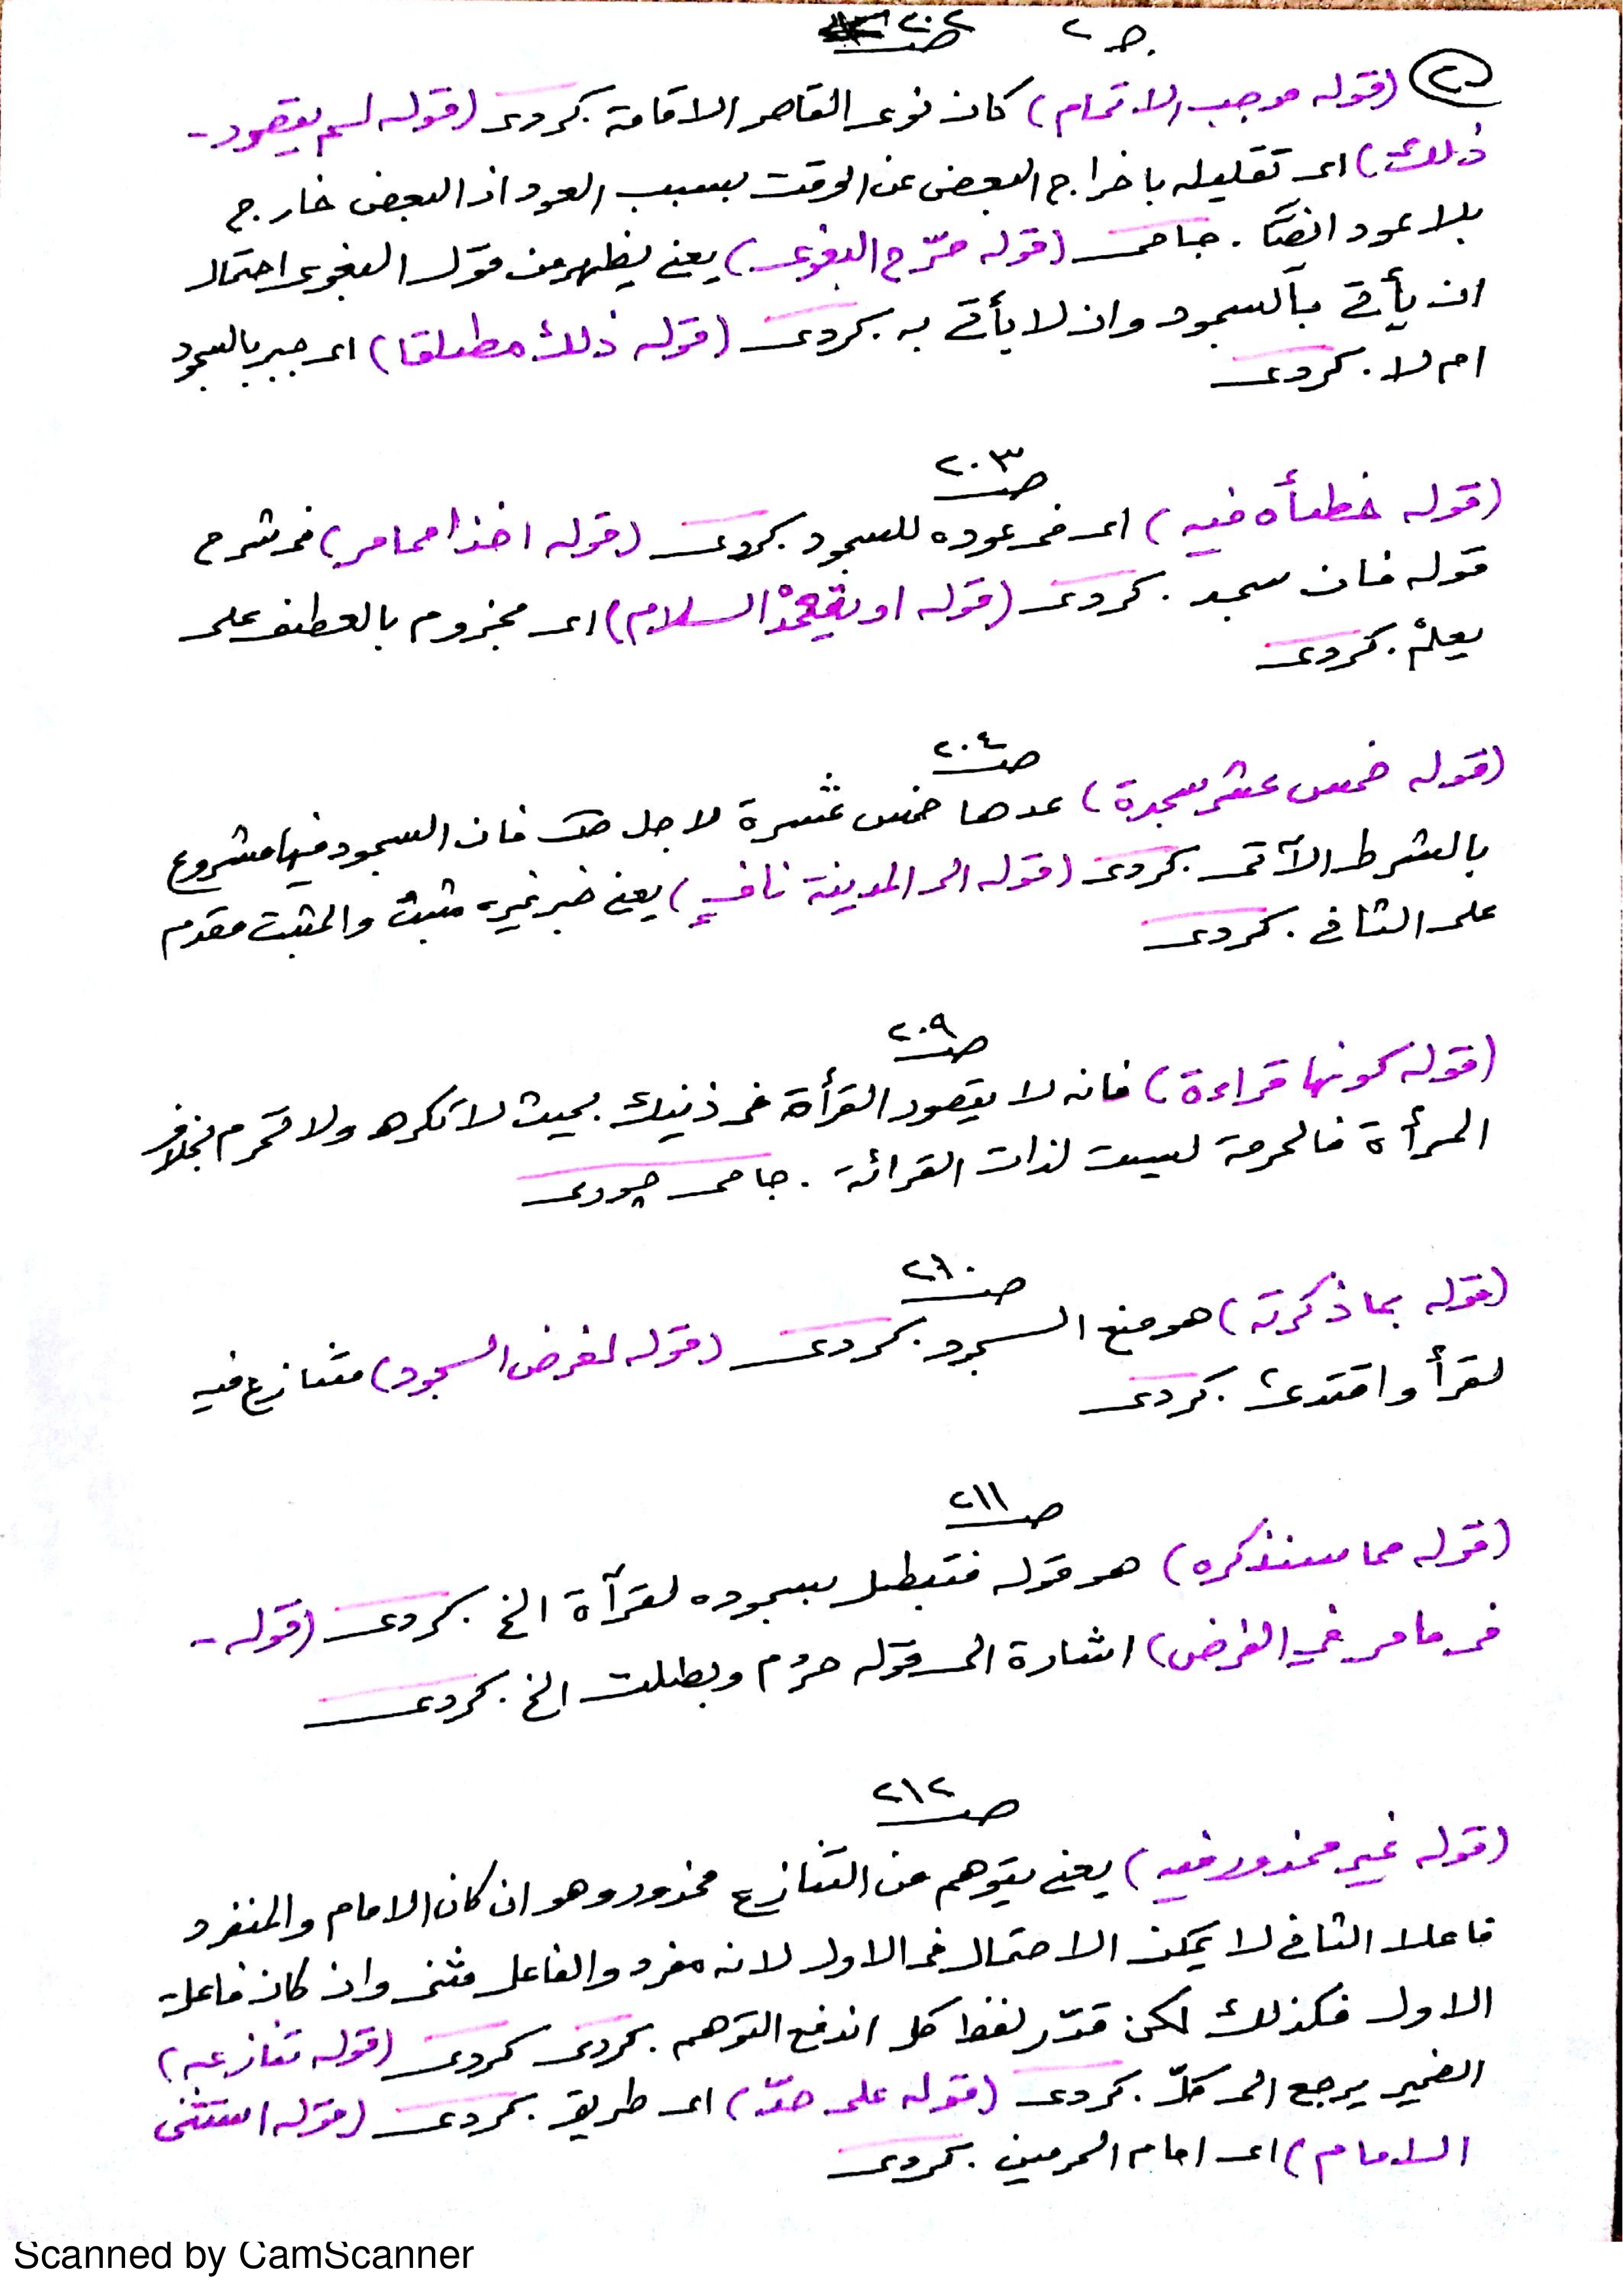 ج ٢ صـ ٢٠٢
٢٠ (قوله موجب الاتمام) كان نوى القاصر الاقامة . كردى (قوله لم يقصود-
ذلك) اى تقليله باخراج البعض عن الوقت بسبب العود اذ البعض خارج
بلا عود ايضًا . جامى (قوله صرّح البغوى) يعنى يظهر من قول البغوى احتمال
ان يأتى بالسجود وان لا يأتى به . كردى (قوله ذلك مطلقا) اى جبر بالسجود
ام لا . كردى
صـ ٢٠٣
(قوله خطأه فيه) اى فى عوده للسجود . كردى (قوله اخذا مما مر) فى شرح
قوله فان سجد . كردى (قوله او السلام) اى مجزوم بالعطف على
يعلمْ . كردى
صـ ٢٠٤
(قوله خمس عشر سجدة) عدها خمس عشرة لاجل صۤ فان السجود فيها مشروع
بالشرط الآتى . كردى (قوله الى المدينة نافٍ) يعنى خبر غيره مثبت والمثبت مقدم
على الثافى . كردى
صـ ٢٠٩
(قوله كونها قراءة) فانه لا يقصود القرأة فى ذنيك بحيث لا تكره ولا تحرم بخلاف
المرأة فالحرمة ليست لذات القرائة . جامى چورى
صـ ٢١٠
(قوله بما ذكرته) هو منع السجود . كردى (قوله لغرض السجود) متنازع فيه
لقرأ واقتدى . كردى
صـ ٢١١
(قوله مما سنذكره) هو قوله فتبطل بسجوده لقرآة الخ . كردى (قوله -
فى مامر فى الفرض) اشارة الى قوله حرُم وبطلت الخ . كردى
صـ ٢١٢
(قوله غير محذور فيه) يعنى يتوهم من التنازع محذور وهو ان كان الامام والمنفرد
فاعلا الثانى لا يمكن الاحتمال فى الاول لانه مفرد والفاعل مثنى وان كان فاعل
الاول فكذلك لكن قدّر لفظ كل اندفع التوهم . كردى كردى (قوله تنازعه)
الضمير يرجع الى كلّ . كردى (قوله على حدّ) اى طريق . كردى (قوله استثنى
الامام) اى امام الحرمين . كردى
Scanned by CamScanner